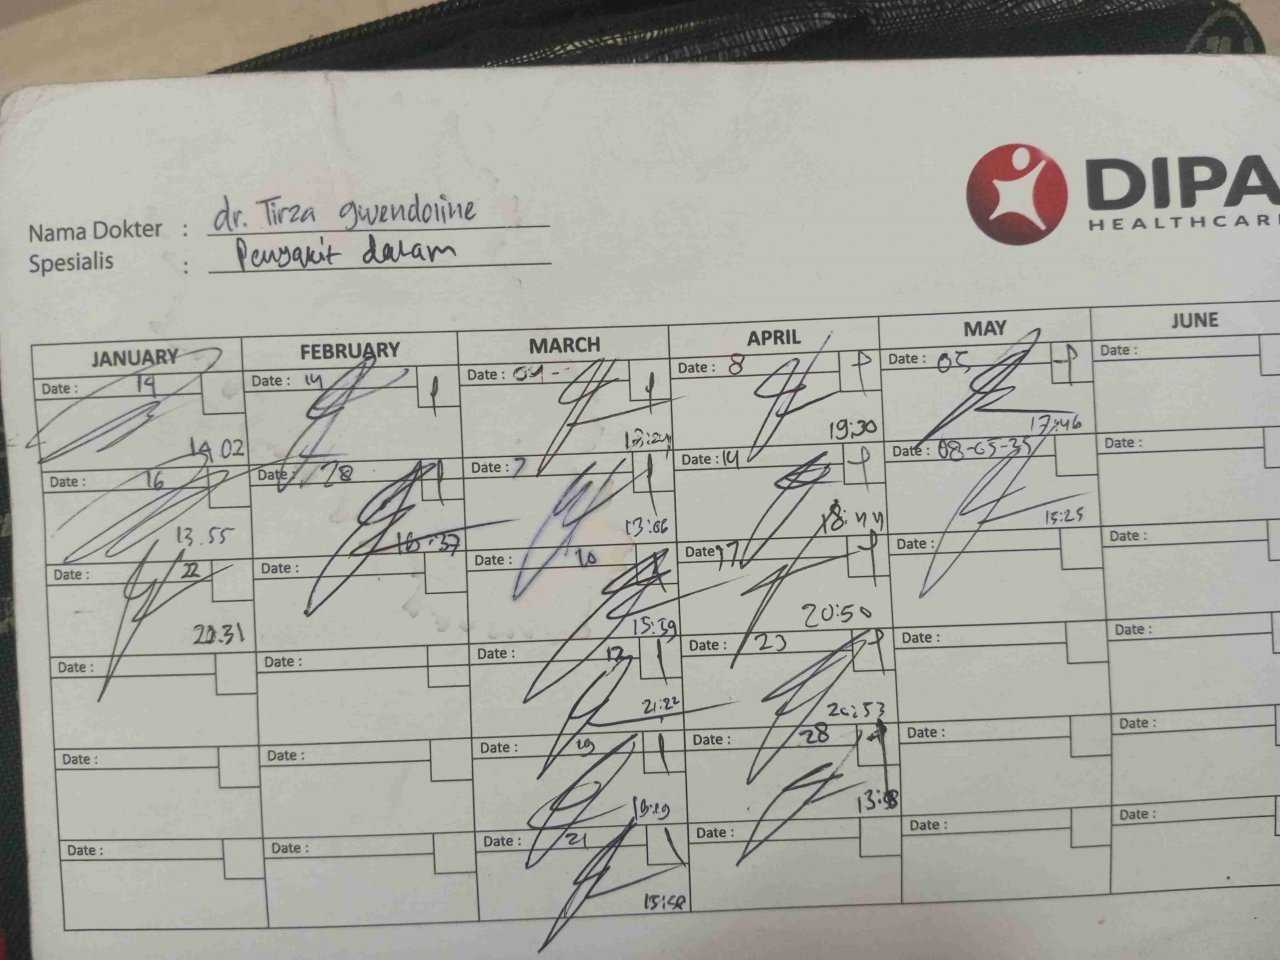 DIPA
HEALTHCAR
Nama Dokter : dr. Tirza gwendoline
Spesialis : Penyakit dalam
JANUARY FEBRUARY MARCH APRIL MAY JUNE
Date : 14 Date : 14 Date : 04 Date : 8 Date : 05 Date :
14 02 13:24 19:30 17:46
Date : 16 Date : 28 Date : 7 Date : 14 Date : Date :
13.55 16:37 13:06 15:25
Date : 22 Date : Date : 10 Date : 17 Date : Date :
20.31 15:39 20:50
Date : Date : Date : Date : 23 Date : Date :
21:22 20:53
Date : Date : Date : 19 Date : 28 Date : Date :
Date : Date : Date : 21 Date : Date : Date :